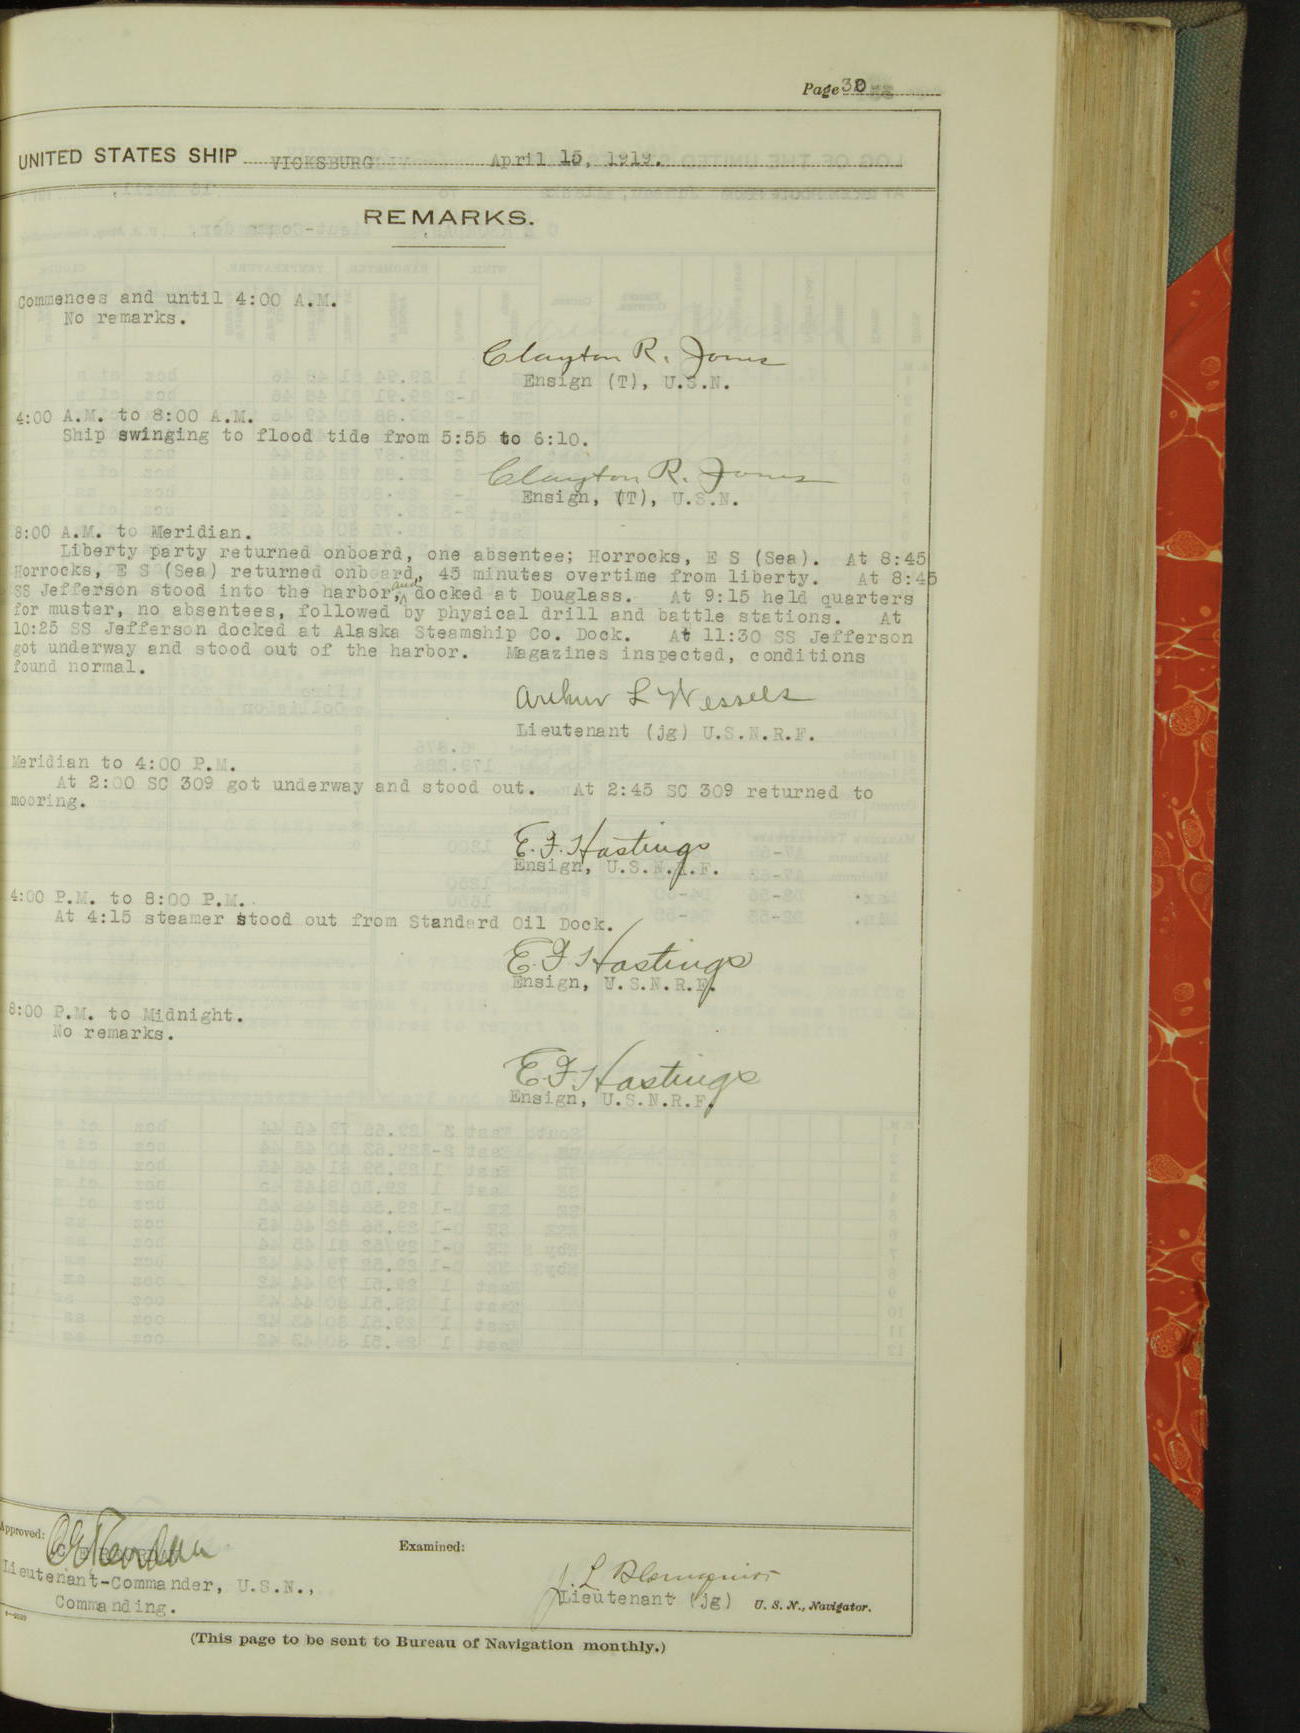 Page 30
UNITED STATES SHIP VICKSBURG April 15, 1919.
REMARKS.
Commences and until 4:00 A.M.
No remarks.
Clayton R. Jones
Ensign (T), U.S.N.
4:00 A.M. to 8:00 A.M.
Ship swinging to flood tide from 5:55 to 6:10.
Clayton R. Jones
Ensign, (T), U.S.N.
8:00 A.M. to Meridian.
Liberty party returned onboard, one absentee; Horrocks, E S (Sea). At 8:45
Horrocks, E S (Sea) returned onboard, 45 minutes overtime from liberty. At 8:45
SS Jefferson stood into the harbor, and docked at Douglass. At 9:15 held quarters
for muster, no absentees, followed by physical drill and battle stations. At
10:25 SS Jefferson docked at Alaska Steamship Co. Dock. At 11:30 SS Jefferson
got underway and stood out of the harbor. Magazines inspected, conditions
found normal.
Arthur L Wessels
Lieutenant (jg) U.S.N.R.F.
Meridian to 4:00 P.M.
At 2:00 SC 309 got underway and stood out. At 2:45 SC 309 returned to
mooring.
E. F. Hastings
Ensign, U.S.N.R.F.
4:00 P.M. to 8:00 P.M.
At 4:15 steamer stood out from Standard Oil Dock.
E F Hastings
Ensign, U.S.N.R.F.
8:00 P.M. to Midnight.
No remarks.
E F Hastings
Ensign, U.S.N.R.F.
Approved:
Examined:
Lieutenant-Commander, U.S.N.,
Commanding.
J. L
Lieutenant (jg) U. S. N., Navigator.
(This page to be sent to Bureau of Navigation monthly.)